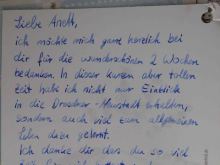 Liebe Anett,
ich möchte mich ganz herzlich bei
dir für die wunderschönen 2 Wochen
bedanken. In dieser kurzen aber tollen
Zeit hab ich nicht nur Einblick
in die Dresdner-Neustadt erhalten,
sondern auch viel zum allgemeinen
Leben dazu gelernt.
Ich danke dir das du so viel